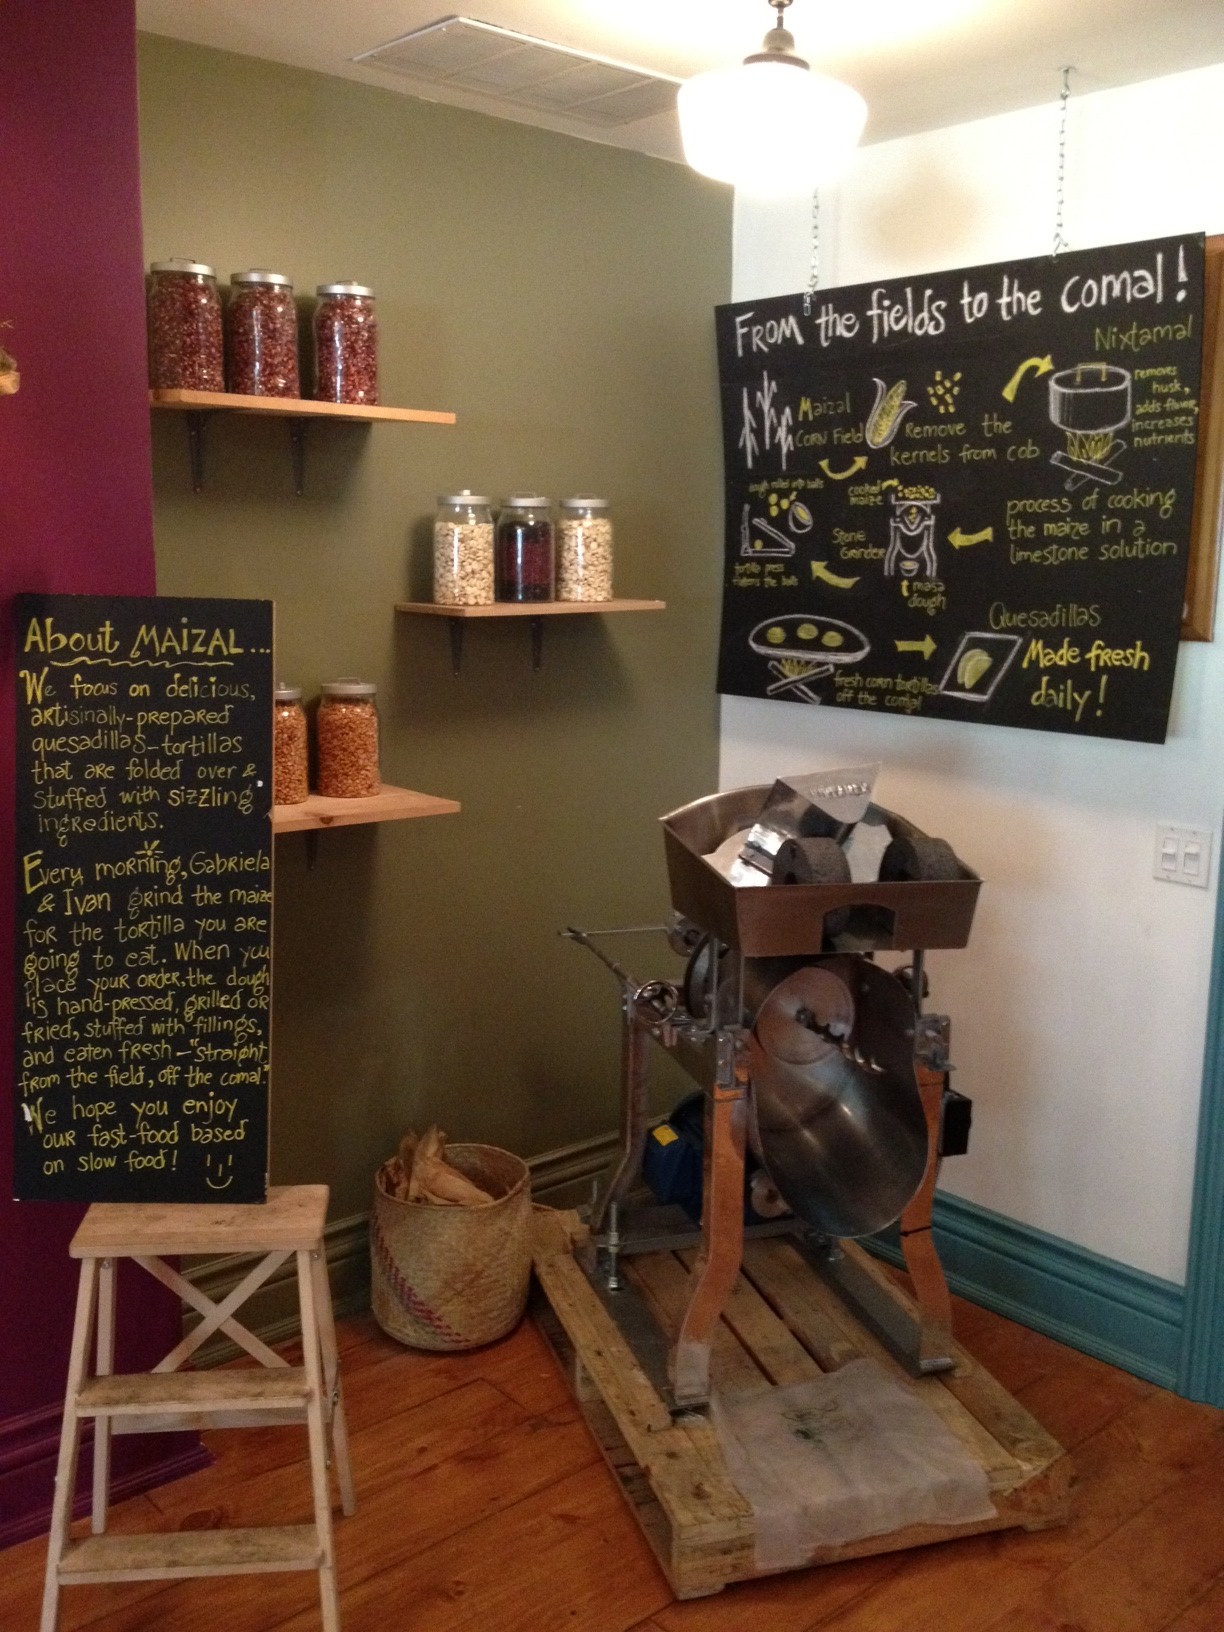 About MAIZAL...
We focus on delicious,
artisinally-prepared
quesadillas-tortillas
that are folded over &
stuffed with sizzling
ingredients.
Every morning, Gabriela
& Ivan grind the maize
for the tortilla you are
going to eat. When you
place your order, the dough
is hand-pressed, grilled or
fried, stuffed with fillings,
and eaten fresh - "straight
from the field, off the comal."
We hope you enjoy
our fast-food based
on slow food!
From the fields to the comal!
Maizal
Corn Field
Remove the
kernels from cob
Nixtamal
removes
husk,
adds flavor,
increases
nutrients
process of cooking
the maize in a
limestone solution
cooked
maize
Stone
Grinder
masa
dough
dough rolled into balls
tortilla press
flattens the balls
fresh corn tortillas
off the comal
Quesadillas
Made fresh
daily!